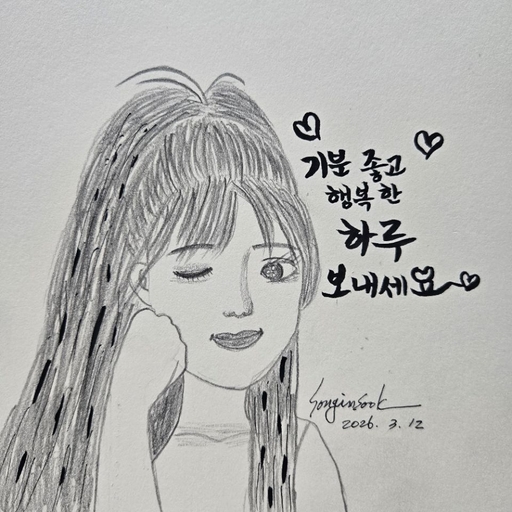 기분 좋고
행복한
하루
보내세요
Songinsook
2026. 3. 12